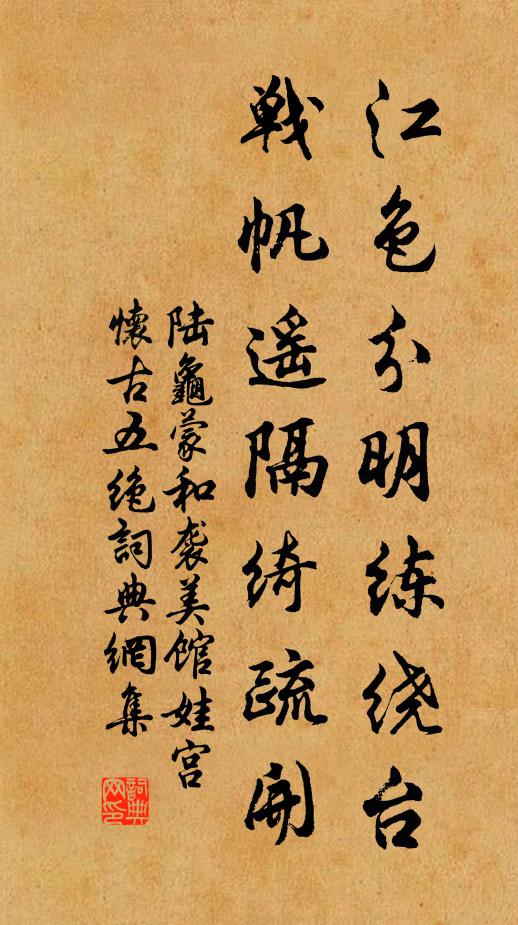 江色分明练绕台
戦帆遥隔绮疏开
陆龜蒙和袭美馆娃宫
懷古五绝詞典網集
詞典網印